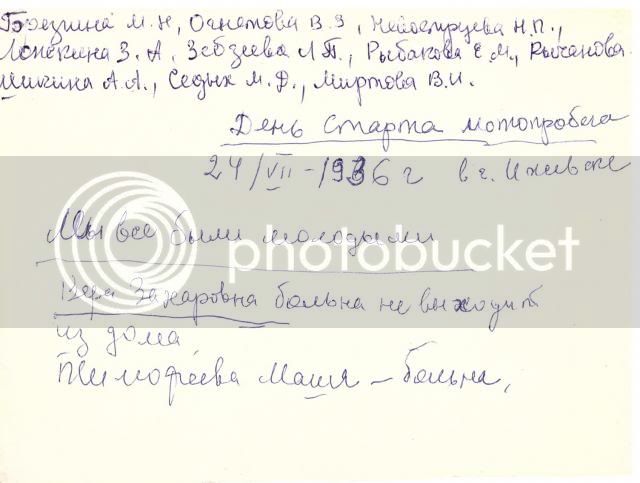 Березина М. Н, Огнетова В. З, Неиоструева Н. П.,
Лопекина З. А, Зебзеева Л Т., Рыбакова Е. М., Рычанова
Шикина А. А., Седых М. Д., Миртова В. И.
День старта мотопробега
24/VII-1936 г в г. Ижевске
photobucket
Мы все были молодыми
Вера Захаровна больна не выходит
из дома
Тимофеева Маша – больна,